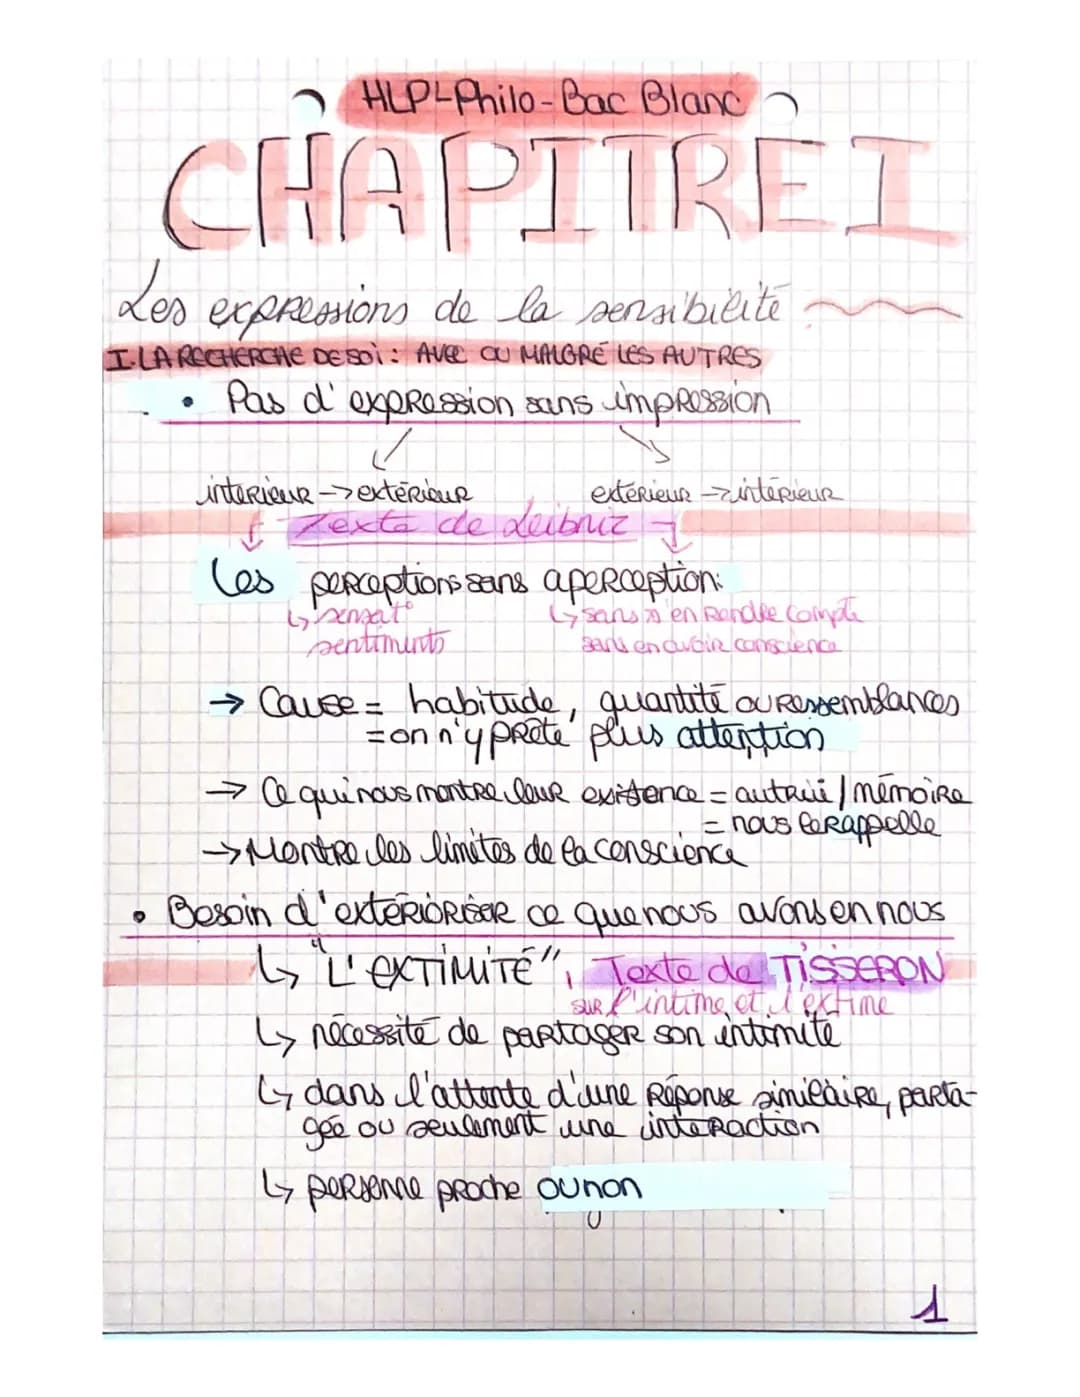 HLP-Philo-Bac Blanc
CHAPITRE I
Les expressions de la sensibilité
I. LA RECHERCHE DE SOI : AVEC OU MALGRÉ LES AUTRES
• Pas d'expression sans impression
intérieur -> extérieur extérieur -> intérieur
Texte de Leibniz
Les perceptions sans aperception:
↳ sensat° ↳ sans s'en rendre compte
sentiments sans en avoir conscience
→ Cause = habitude, quantité ou ressemblances
= on n'y prête plus attention
→ Ce qui nous montre leur existence = autrui / mémoire
= nous le rappelle
→ Montre les limites de la conscience
• Besoin d'extérioriser ce que nous avons en nous
↳ "L'EXTIMITÉ", Texte de TISSERON
sur l'intime et l'extime
↳ nécessité de partager son intimité
↳ dans l'attente d'une réponse similaire, parta-
gée ou seulement une interaction
↳ personne proche ou non
1